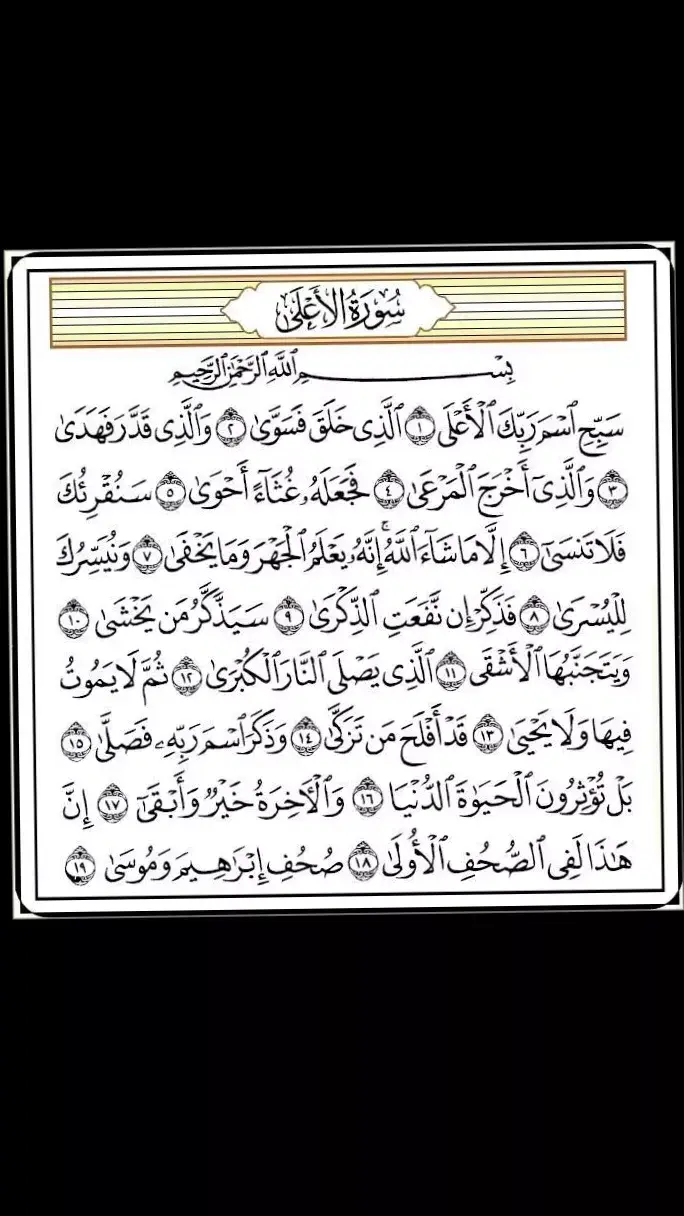 سُورَةُ الأَعْلَى
بِسْمِ ٱللَّهِ ٱلرَّحْمَٰنِ ٱلرَّحِيمِ
سَبِّحِ ٱسْمَ رَبِّكَ ٱلْأَعْلَى ١ ٱلَّذِى خَلَقَ فَسَوَّىٰ ٢ وَٱلَّذِى قَدَّرَ فَهَدَىٰ
٣ وَٱلَّذِىٓ أَخْرَجَ ٱلْمَرْعَىٰ ٤ فَجَعَلَهُۥ غُثَآءً أَحْوَىٰ ٥ سَنُقْرِئُكَ
فَلَا تَنسَىٰٓ ٦ إِلَّا مَا شَآءَ ٱللَّهُ ۚ إِنَّهُۥ يَعْلَمُ ٱلْجَهْرَ وَمَا يَخْفَىٰ ٧ وَنُيَسِّرُكَ
لِلْيُسْرَىٰ ٨ فَذَكِّرْ إِن نَّفَعَتِ ٱلذِّكْرَىٰ ٩ سَيَذَّكَّرُ مَن يَخْشَىٰ ١٠
وَيَتَجَنَّبُهَا ٱلْأَشْقَى ١١ ٱلَّذِى يَصْلَى ٱلنَّارَ ٱلْكُبْرَىٰ ١٢ ثُمَّ لَا يَمُوتُ
فِيهَا وَلَا يَحْيَىٰ ١٣ قَدْ أَفْلَحَ مَن تَزَكَّىٰ ١٤ وَذَكَرَ ٱسْمَ رَبِّهِۦ فَصَلَّىٰ ١٥
بَلْ تُؤْثِرُونَ ٱلْحَيَوٰةَ ٱلدُّنْيَا ١٦ وَٱلْـَٔاخِرَةُ خَيْرٌ وَأَبْقَىٰٓ ١٧ إِنَّ
هَٰذَا لَفِى ٱلصُّحُفِ ٱلْأُولَىٰ ١٨ صُحُفِ إِبْرَٰهِيمَ وَمُوسَىٰ ١٩